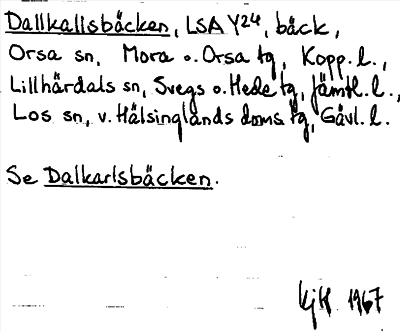 Dallkallsbäcken, LSA Y24, bäck,
Orsa sn, Mora o. Orsa tg, Kopp. l.,
Lillhärdals sn, Svegs o. Hede tg, Jämtl. l.,
Los sn, v. Hälsinglands doms tg, Gävl. l.
Se Dalkarlsbäcken.
KjH 1967